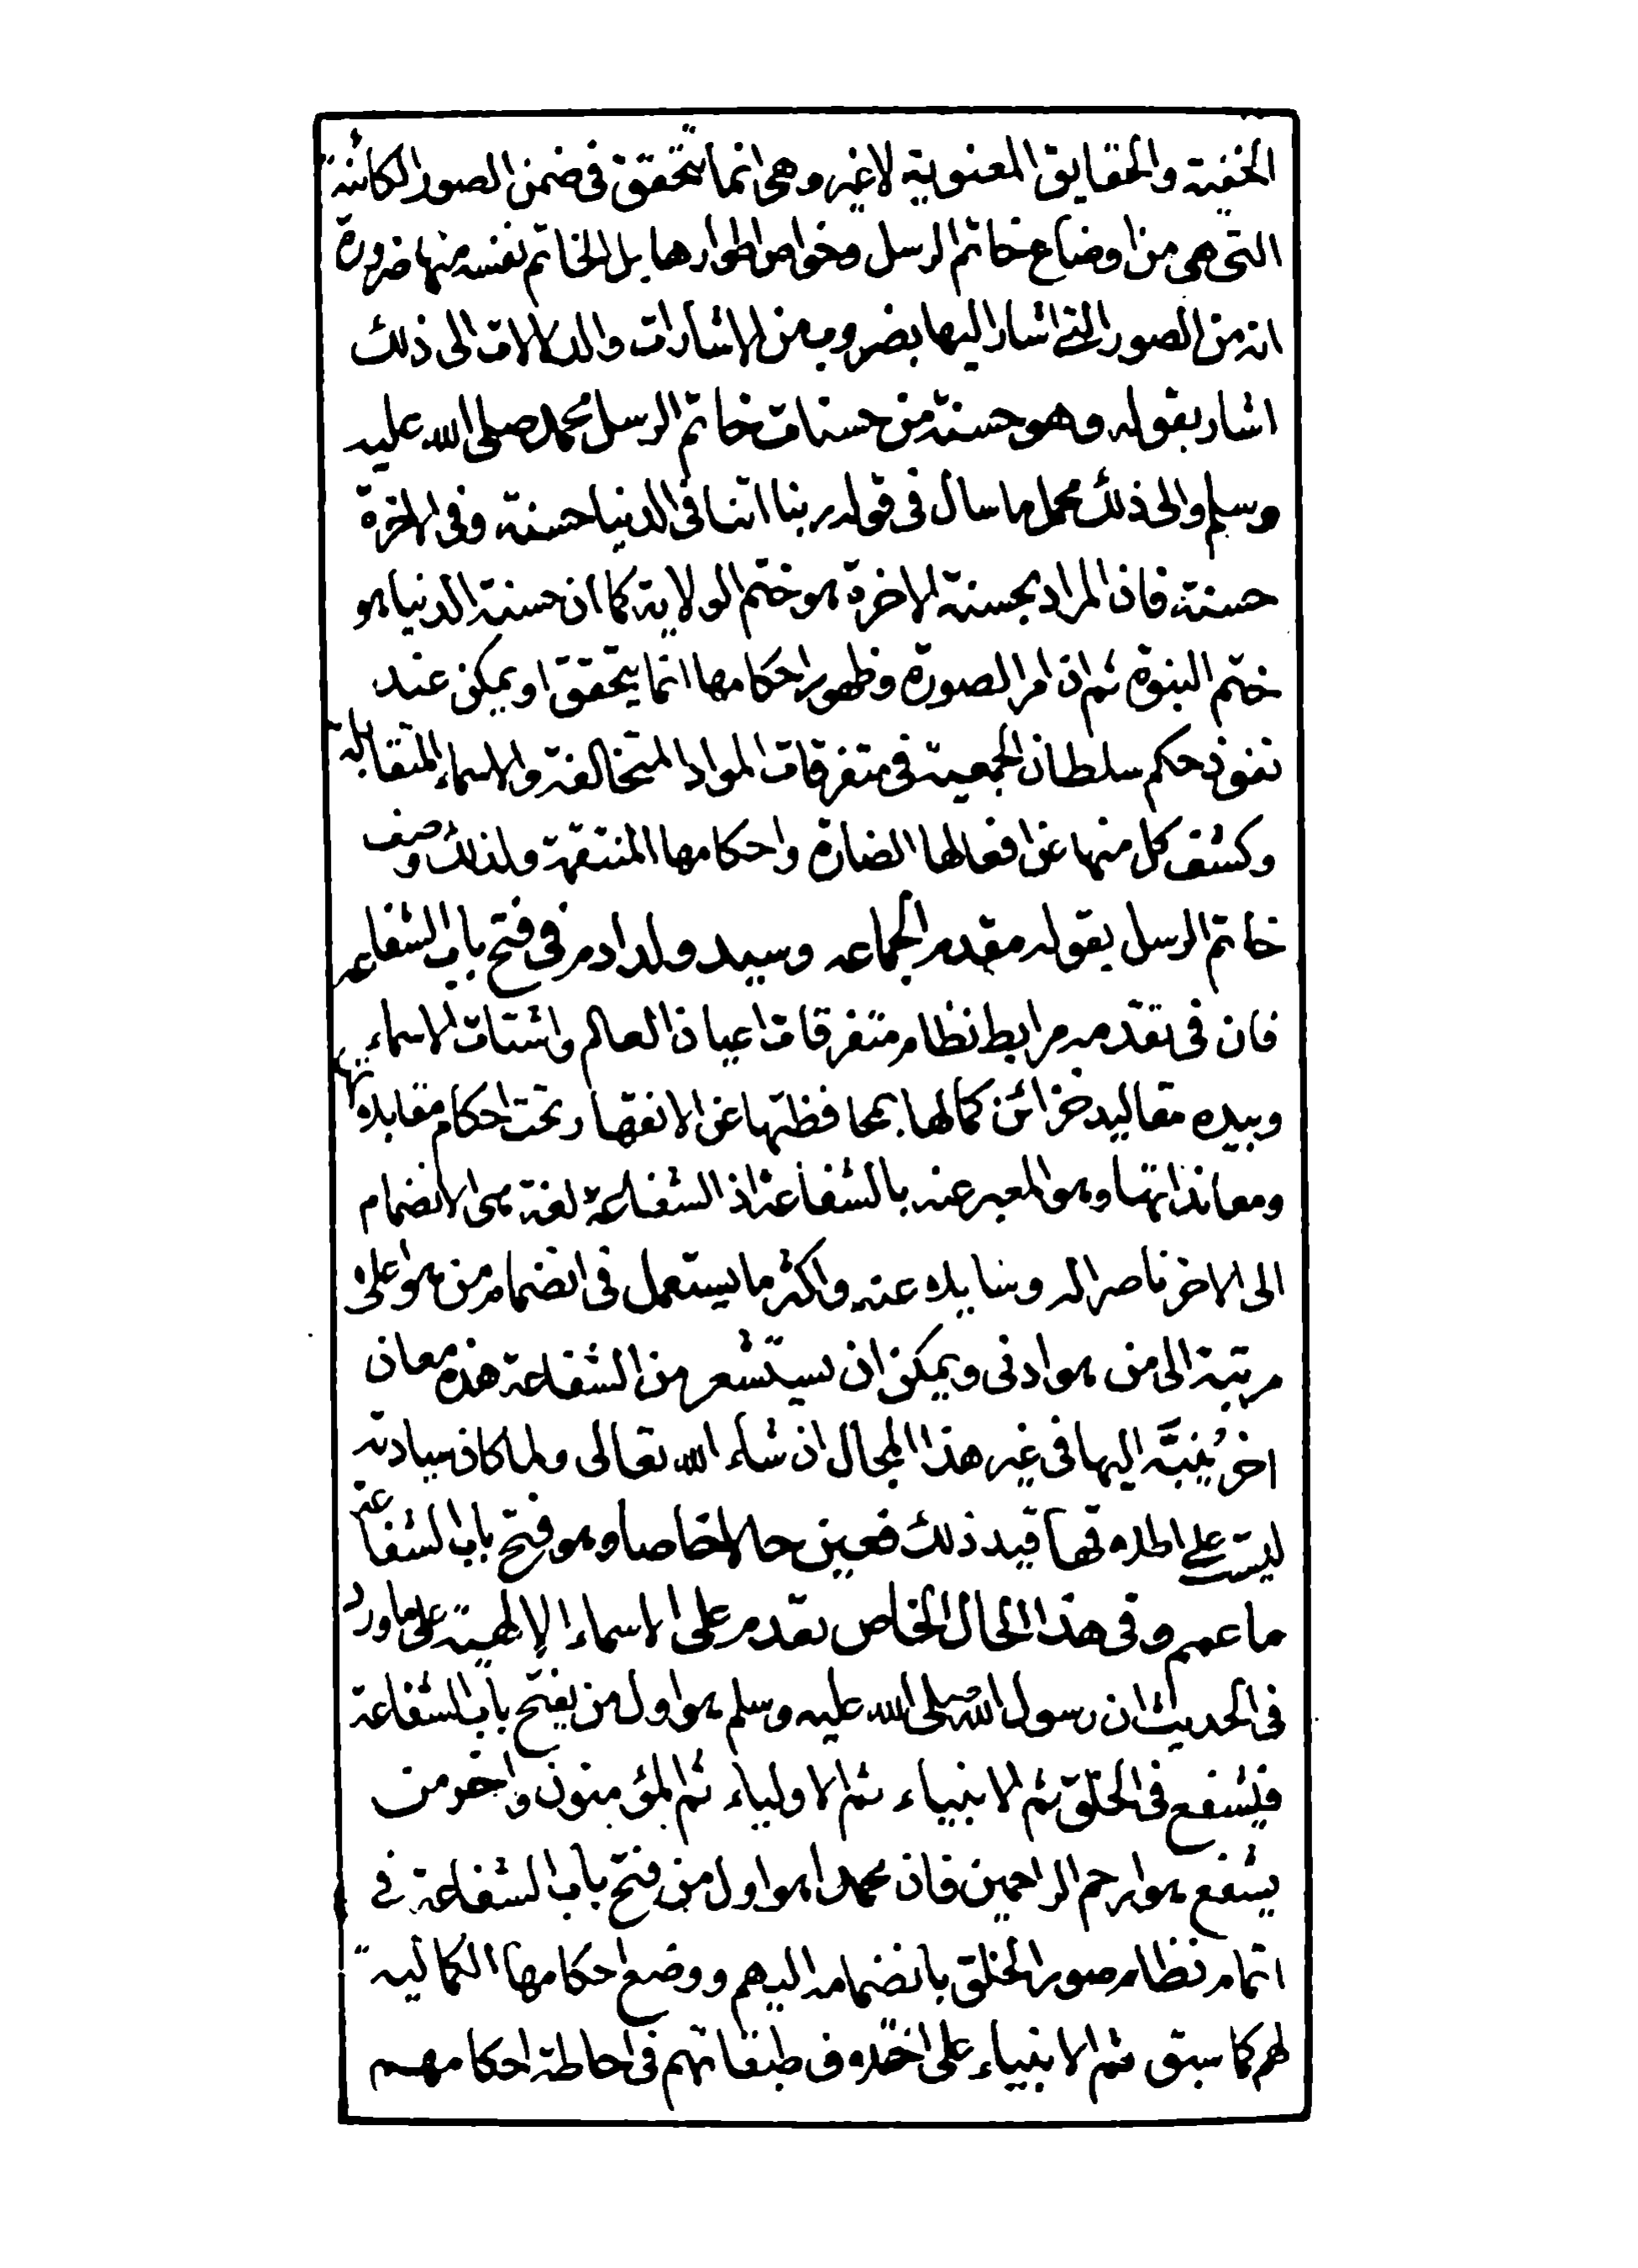 الخفية والحقايق المعنوية لا غير وهى انما تتحقق فى ضمن الصور الكائنة
التى هى من اوضاع خاتم الرسل وخواص اطوارها بل الخاتم نفسه منها ضرورة
انه من الصور التى اشار اليها بضروب من الاشارات والدلالات الى ذلك
اشار بقوله وهو حسنة من حسنات خاتم الرسل محمد صلى الله عليه
وسلم والى ذلك محمل ما سال فى قوله ربنا اتنا فى الدنيا حسنة وفى الاخرة
حسنة فان المراد بحسنة الاخرة هو ختم الولاية كما ان حسنة الدنيا هو
ختم النبوة ثم ان امر الصورة وظهور احكامها انما يتحقق او يمكن عند
نفوذ حكم سلطان الجمعية فى متفرقات المواد المتخالفة والاسماء المتقابلة
وكشف كل منها عن افعالها الضارة واحكامها المنتقمة ولذلك وصف
خاتم الرسل بقوله مقدم الجماعه وسيد ولد ادم فى فتح باب الشفاعه
فان فى تقدمه مرابط نظام متفرقات اعيان العالم واشتات الاسماء
وبيده مقاليد خزائن كمالها بمحافظتها عن الانقهار تحت احكام مقابلاتها
ومعانداتها وهو المعبر عنه بالشفاعة اذ الشفاعة لغة هى الانضمام
الى الاخر ناصرا له وسايلا عنه واكثر ما يستعمل فى انضمام من هو اعلى
مرتبة الى من هو ادنى ويمكن ان يستشعر من الشفاعة هذه معان
اخر يُنبَّه اليها فى غير هذا المجال ان شاء الله تعالى ولما كان سيادته
ليست على اطلاقها قيد ذلك فعين حالا خاصا وهو فتح باب الشفاعة
ما عمم وفى هذا الحال الخاص تقدم على الاسماء الإلهية على ما ورد
فى الحديث ان رسول الله صلى الله عليه وسلم هو اول من يفتح باب الشفاعة
فيشفع فى الخلق ثم الانبياء ثم الاولياء ثم المؤمنون واخر من
يشفع هو ارحم الراحمين فان محمدا هو اول من فتح باب الشفاعة فى
اتمام نظام صور الخلق بانضمامه اليهم ووضع احكامها الكمالية
لهم كما سبق ثم الانبياء على اختلاف طبقاتهم فى احاطة احكامهم